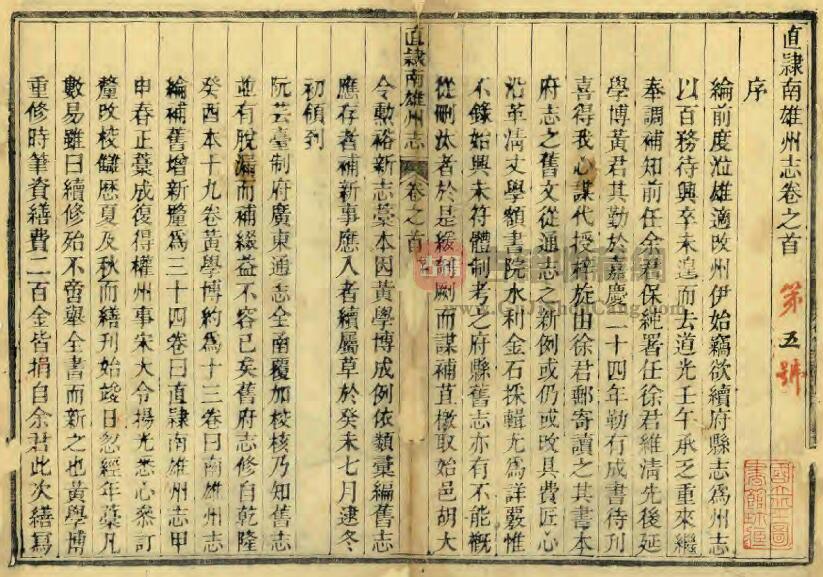 直隷南雄州志卷之首
第五號
序
綸前度涖雄適改州伊始竊欲續府縣志為州志
以百務待興卒未遑而去道光壬午承乏重來繼
奉調補知前任余君保純署任徐君維清先後延
學博黃君其勤於嘉慶二十四年勒有成書待刊
喜得我心謀代授梓旋由徐君郵寄讀之其書本
府志之舊文從通志之新例或仍或改具費匠心
沿革清丈學額書院水利金石採輯尤為詳覈惟
不錄始興未符體制考之府縣舊志亦有不能概
從刪汰者於是緩剞劂而謀補苴檄取始邑胡大
直隷南雄州志
卷之首
令勳裕新志藁本因黃學博成例依類彙編舊志
應存者補新事應入者續屬草於癸未七月逮冬
初領到
阮芸臺制府廣東通志全南覆加校核乃知舊志
並有脫漏而補綴益不容已矣舊府志修自乾隆
癸酉本十九卷黃學博約為十三卷曰南雄州志
綸補舊增新釐為三十四卷曰直隷南雄州志甲
申春正藁成復得權州事宋大令揚光悉心叅訂
釐改校讎歷夏及秋而繕刊始竣日忽經年藁凡
數易雖曰續修殆不啻舉全書而新之也黃學博
重修時筆資繕費二百金皆捐自余君此次繕寫